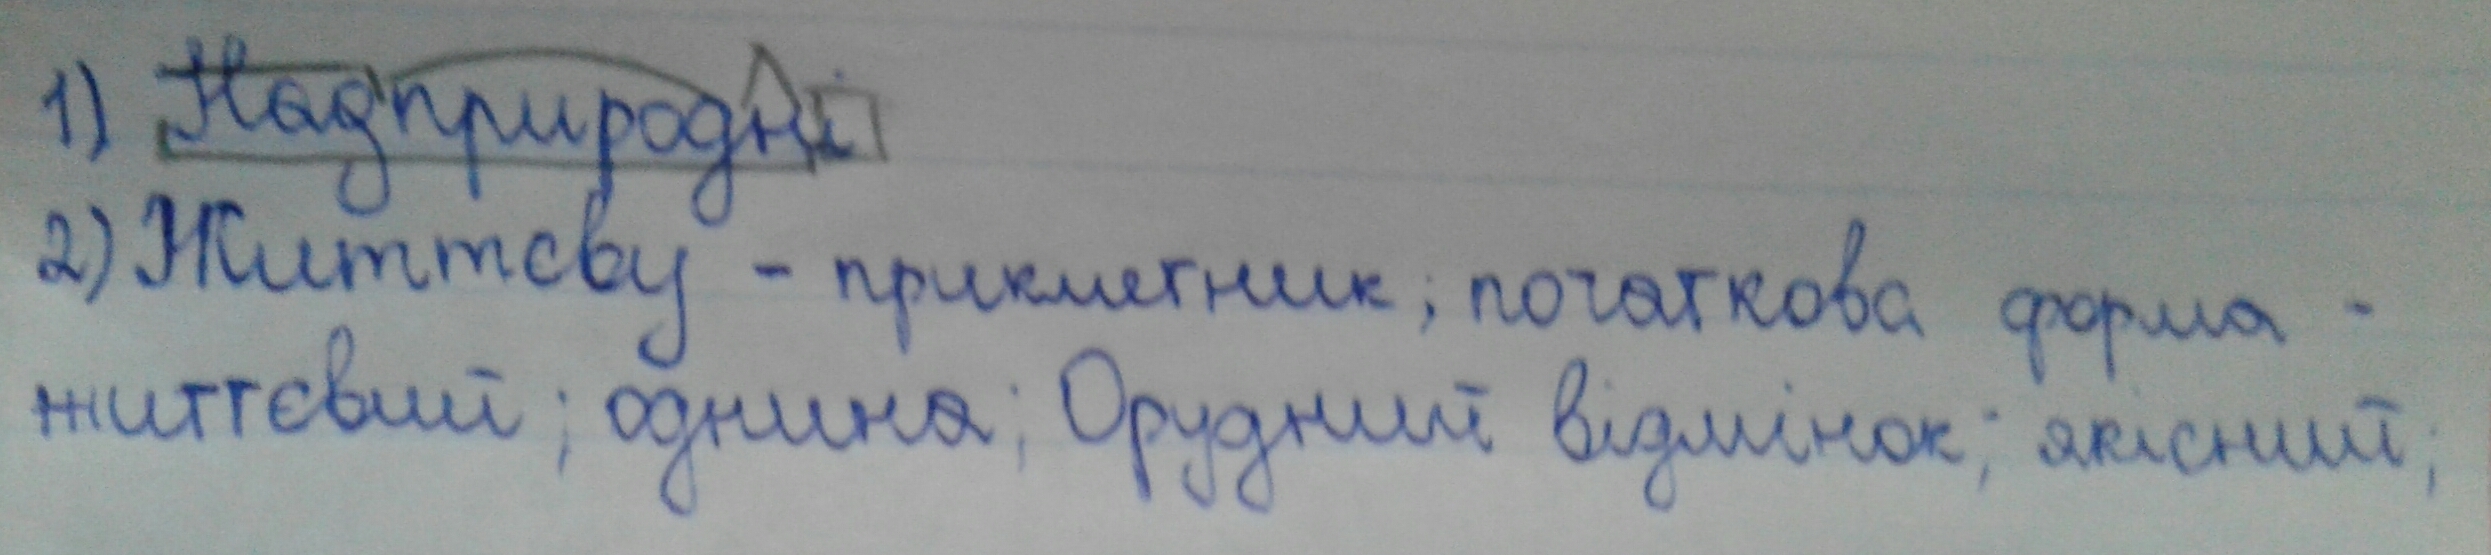 1) Надприродні
2) Життєву - прикметник; початкова форма -
життєвий; однина; Орудний відмінок; якісний;